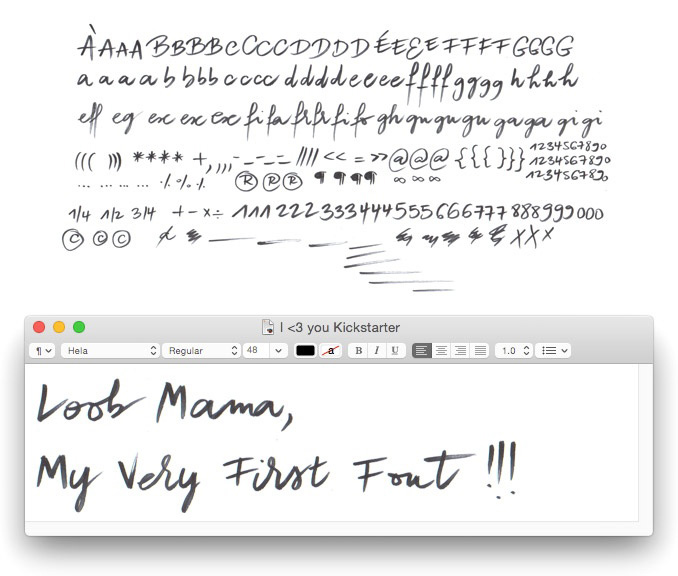 ÀAAA BBBB CCCC DDDD ÉEEE FFFF GGGG
aaaa bbbb cccc dddd eeee ffff gggg hhhh
eff eg exc exc exc fi fa fr fr fi fo gh gu gu gu ga ga gi gi
((( ))) **** +,,,,----- //// << = >> @@@ {{{ }}} 1234567890
1234567890
... ... ... ... ·/. °/. ·/. ®®® ¶¶¶¶ ∞∞∞ 1234567890
1/4 1/2 3/4 +-×÷ 111 222 333 444 555 666 777 888 999 000
©©© XXX
I <3 you Kickstarter
¶ Hela Regular 48 a B I U 1.0
Loob Mama,
My Very First Font !!!